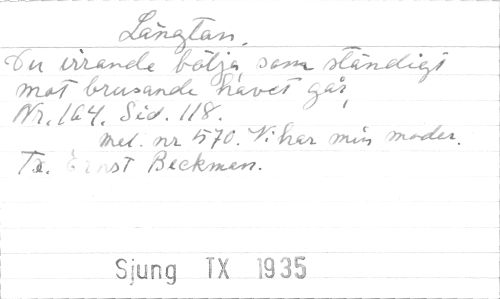 Längtan.
Du irrande bölja som ständigt
mot brusande havet går,
Nr. 164. Sid. 118.
mel. nr 570. Vi har min moder.
Tx. Ernst Beckman.
Sjung TX 1935